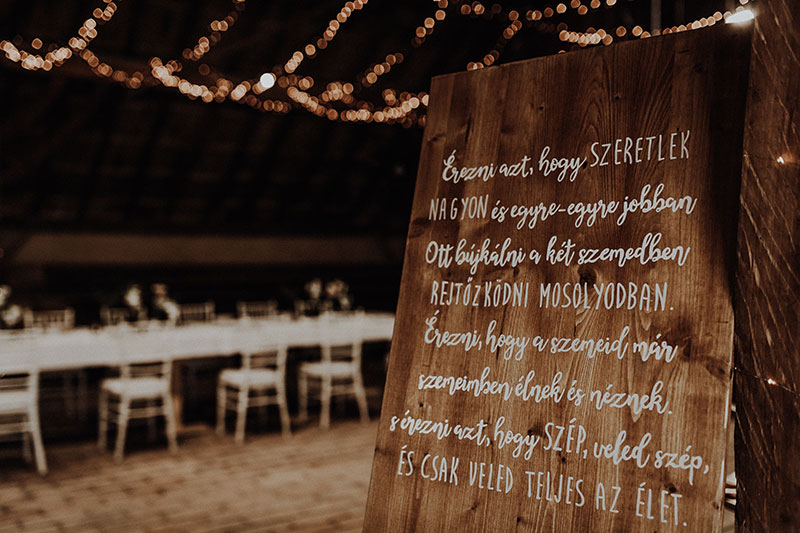 Érezni azt, hogy SZERETLEK
NAGYON és egyre-egyre jobban
Ott bújkálni a két szemedben
REJTŐZKÖDNI MOSOLYODBAN.
Érezni, hogy a szemeid már
szemeimben élnek és néznek.
s érezni azt, hogy SZÉP, veled szép,
ÉS CSAK VELED TELJES AZ ÉLET.